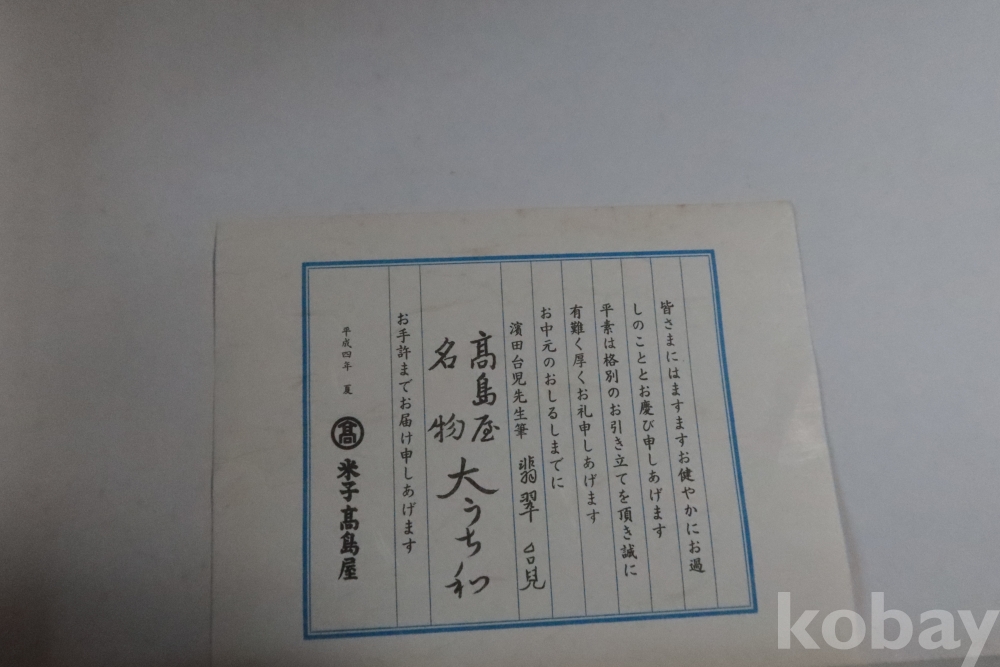 皆さまにはますますお健やかにお過
しのこととお慶び申しあげます
平素は格別のお引き立てを頂き誠に
有難く厚くお礼申しあげます
お中元のおしるしまでに
濱田台児先生筆 翡翠 台児
髙島屋
名物 大うち和
お手許までお届け申しあげます
平成四年 夏
髙 米子髙島屋
kobay